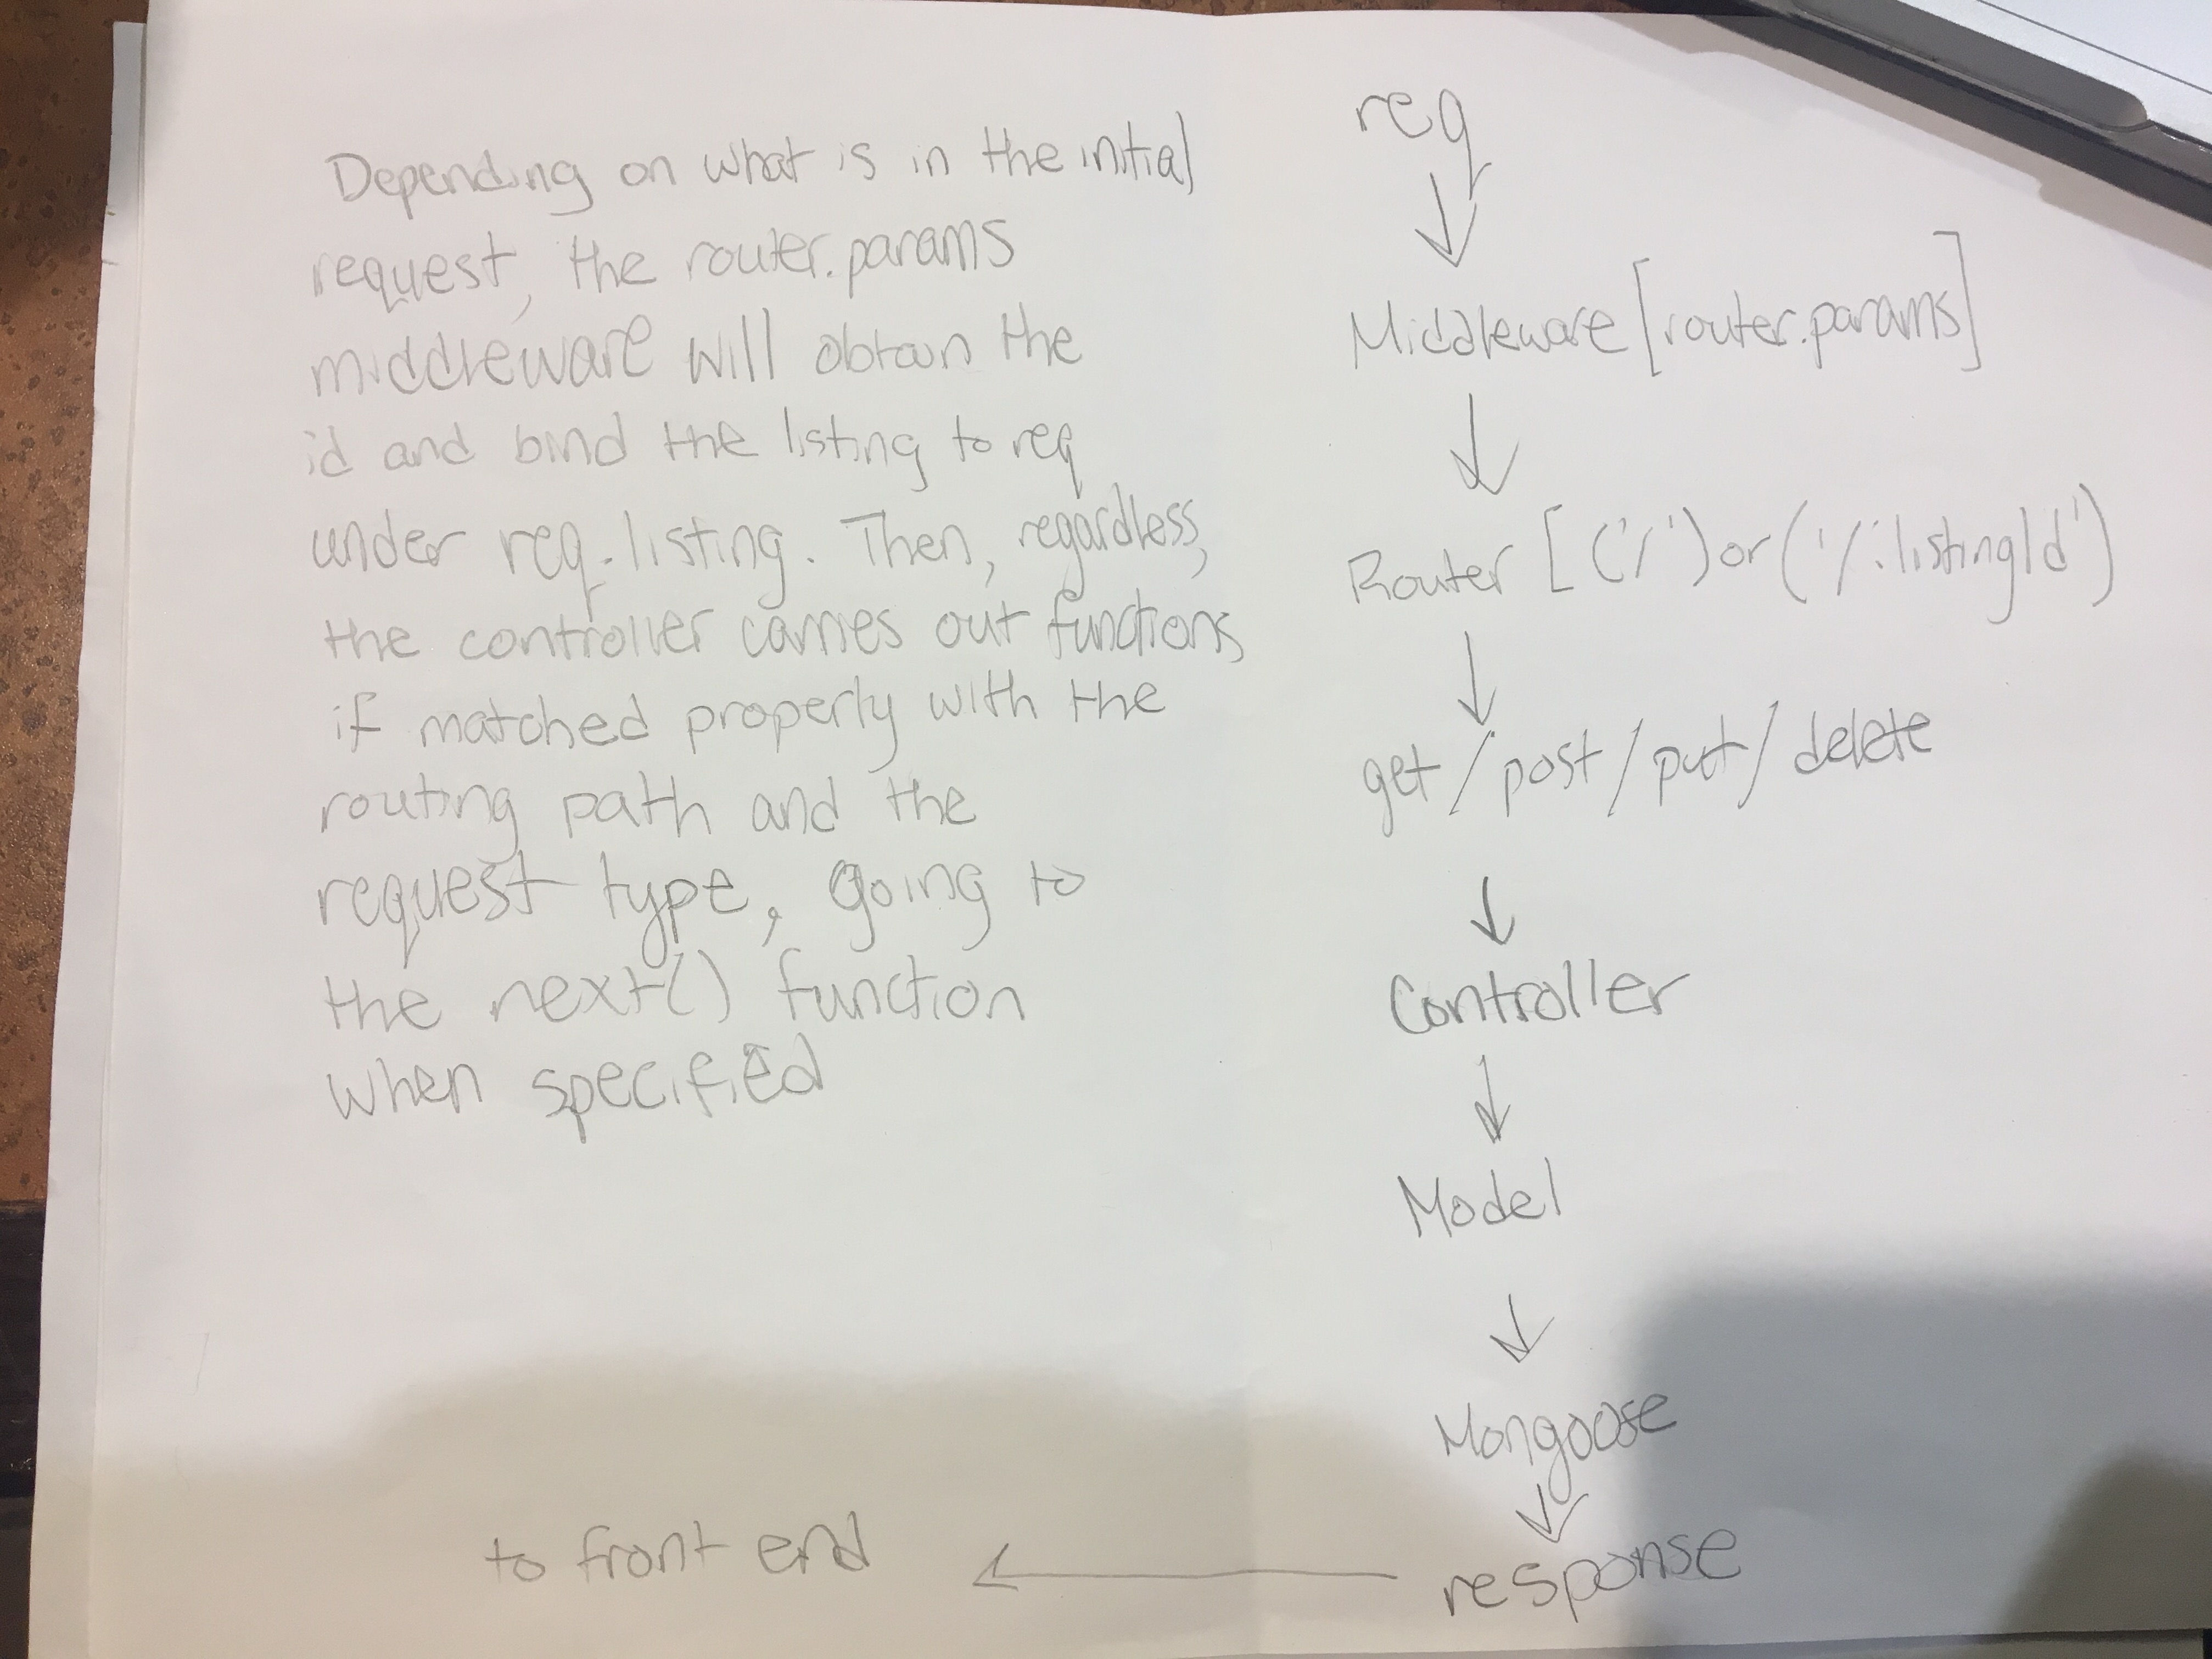 Depending on what is in the initial
request, the router.params
middleware will obtain the
id and bind the listing to req
under req.listing. Then, regardless,
the controller carries out functions
if matched properly with the
routing path and the
request type, going to
the next() function
when specified
req
Middleware [router.params]
Router [('/') or ('/:listingId')
get / post / put / delete
Controller
Model
Mongoose
response
to front end